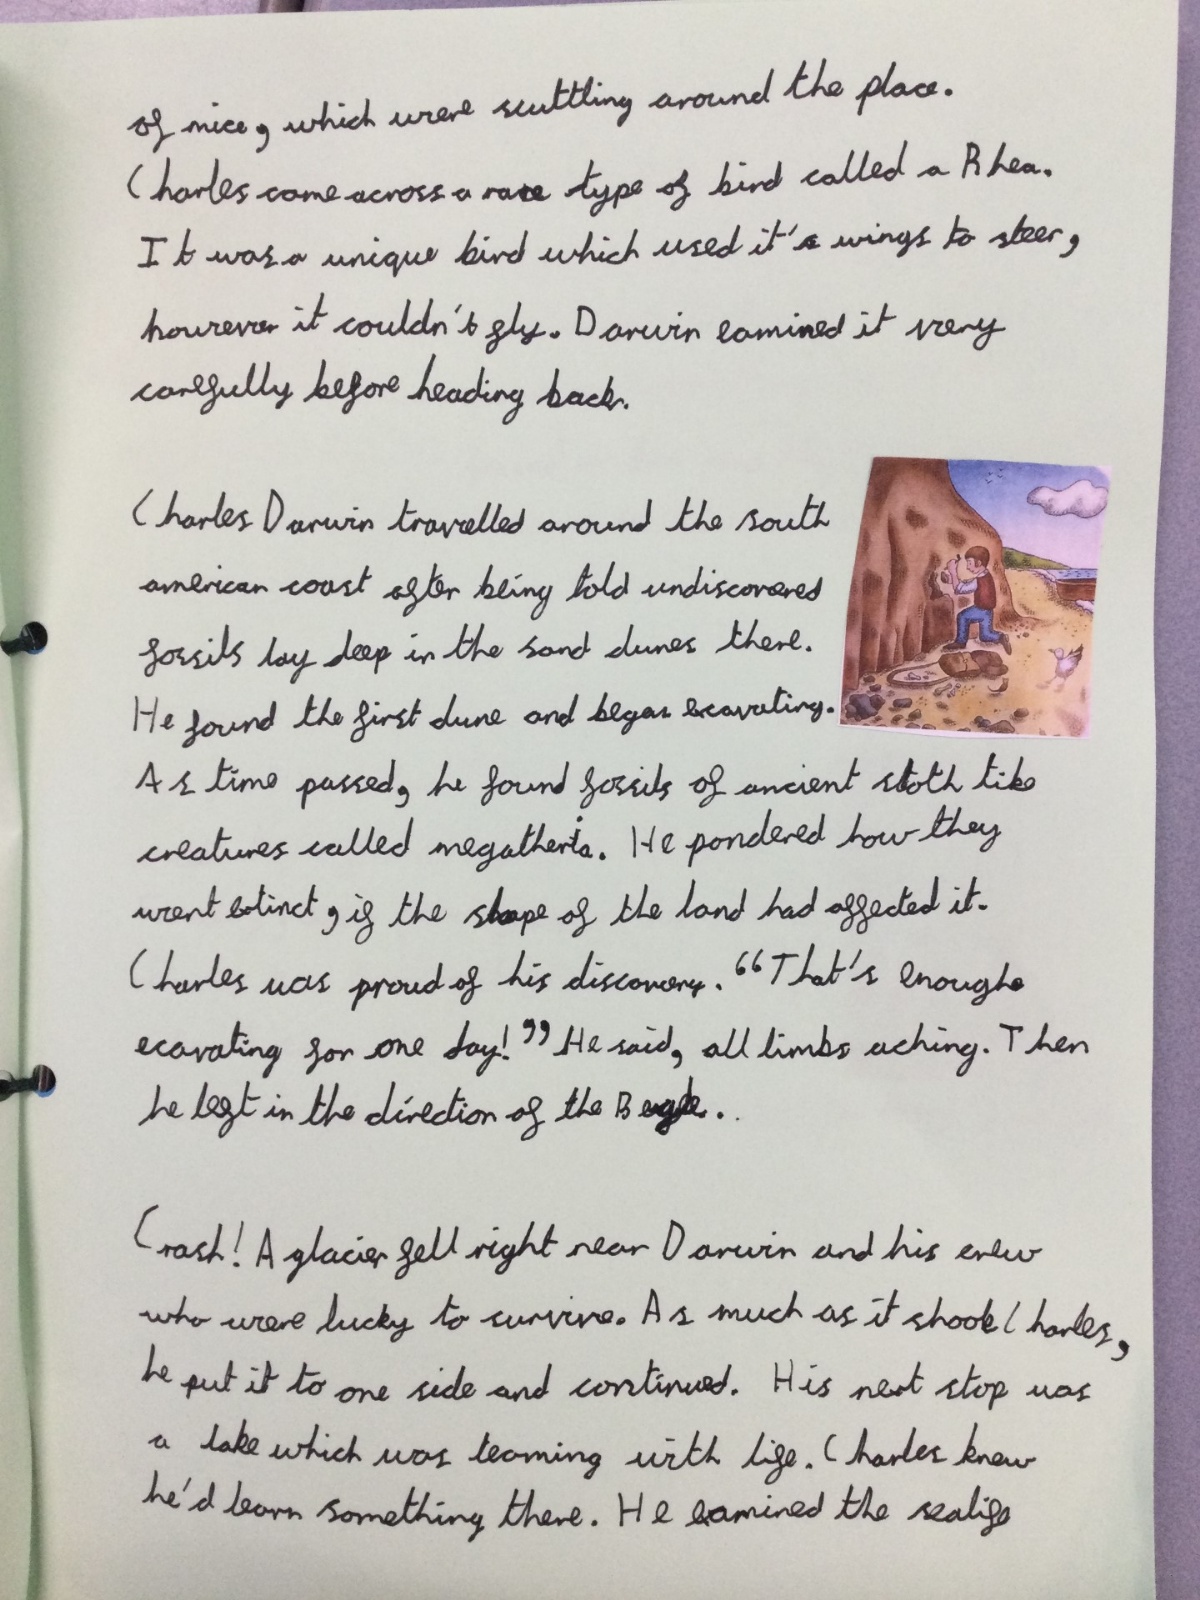 of mice, which were scuttling around the place.
Charles came across a rare type of bird called a Rhea.
It was a unique bird which used it's wings to steer,
however it couldn't fly. Darwin examined it very
carefully before heading back.
Charles Darwin travelled around the south
american coast after being told undiscovered
fossils lay deep in the sand dunes there.
He found the first dune and began excavating.
As time passed, he found fossils of ancient sloth like
creatures called megatheria. He pondered how they
went extinct, if the shape of the land had affected it.
Charles was proud of his discovery. "That's enough
excavating for one day!" He said, all limbs aching. Then
he left in the direction of the Beagle.
Crash! A glacier fell right near Darwin and his crew
who were lucky to survive. As much as it shook Charles,
he put it to one side and continued. His next stop was
a lake which was teaming with life. Charles knew
he'd learn something there. He examined the sealife